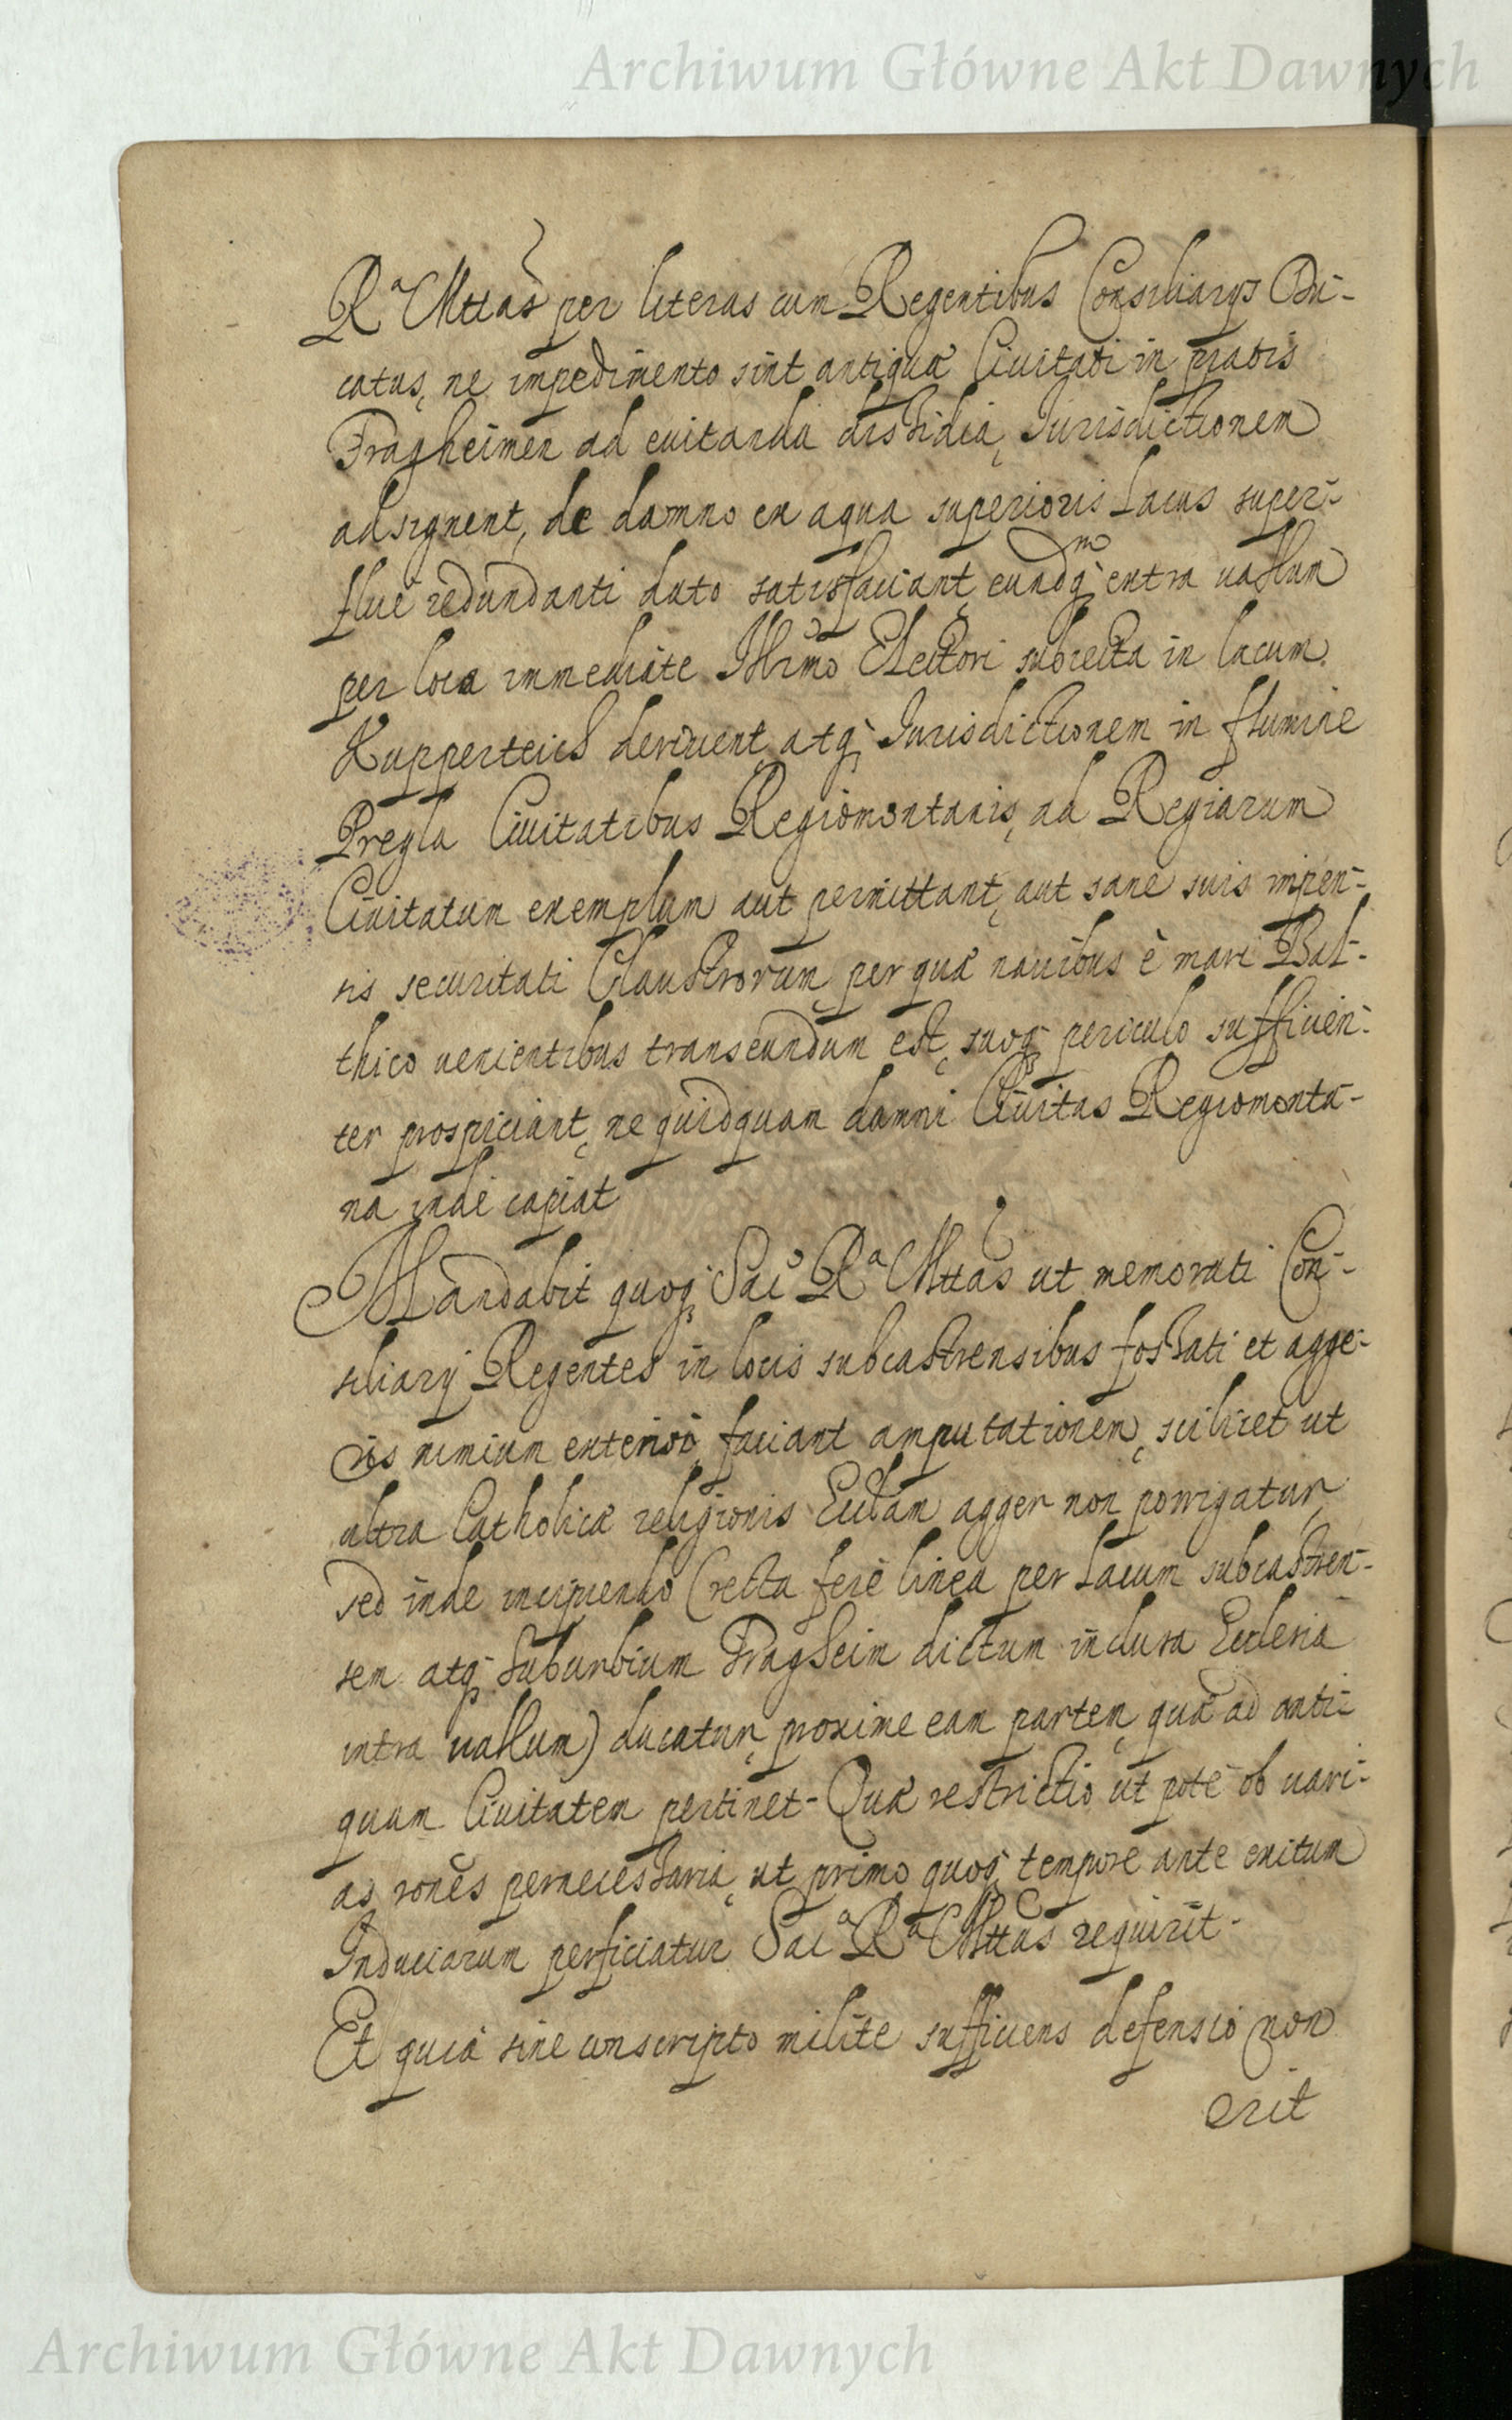 Archiwum Główne Akt Dawnych
Ra Mttas per literas cum Regentibus Consiliarys Du-
catus, ne impedimento sint antiquæ Civitati in pratis
Fragheimen ad euitanda dissidia, Jurisdictionem
adsignent, de damno ex aqua superioris Lacus super-
flue redundanti dato satisfaciant, eandq entra uallum
per loca immediate Illrmo Electori subiecta in lacum
Kupperteich deriuent atq Jurisdictionem in flumine
Pregla Ciuitatibus Regiomontanis, ad Regiarum
Ciuitatum exemplum aut permittant, aut sane suis inpen-
sis securitati Claustrorum, per quæ nauibus è mari Bal-
thico uenientibus transeundum est, suoq periculo sufficien-
ter prospiciant, ne quidquam damni Ciuitas Regiomonta-
na inde capiat
Mandabit quoq Sac Ra Mttas ut memorati Con-
siliarij Regentes in locis subcastrensibus fossati et agge-
ris nimium exteriori faciant amputationem, scilicet ut
ultra Catholicæ religionis Ecclam agger non porrigatur,
sed inde incipiendo (recta ferè linea per Lacum subcastren-
sem atq Suburbium Fragheim dictum inclusa Ecclesia
intra uallum) ducatur, proxime eam partem, quæ ad anti-
quam Ciuitatem pertinet - Quæ restrictio ut potè ob uari-
as rones pernecessaria, ut primo quoq tempore ante exitum
Induciarum perficiatur Saca Ra Mttas requirit -
Et quia sine conscripto milite sufficiens defensio non
erit
Archiwum Główne Akt Dawnych